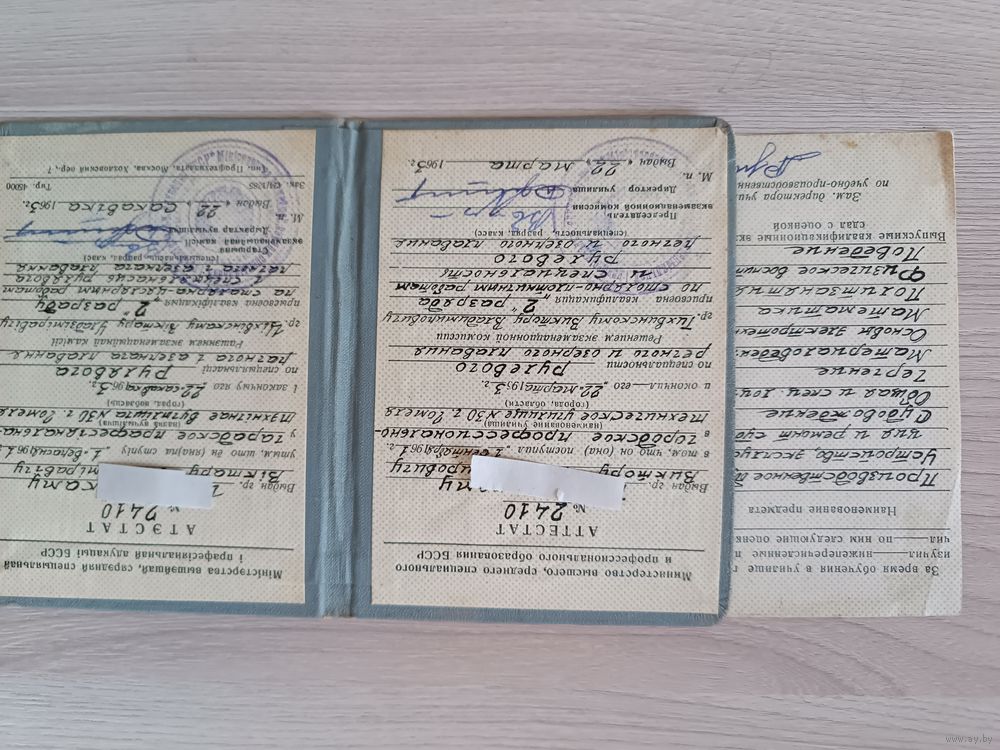 За время обучения в училище г
изучил нижеперечисленные п
чил по ним следующие оценк
Наименование предмета
Производственное
Устройство, эксплуа
ция и ремонт суд
Судовождение
Общая и спец.
Черчение
Материаловеден.
Основы электротехн
Математика
Политзанятия
Физическое воспит
Поведение
Выпускные квалификационные эк
сдал с оценкой
Зам. директора учи
по учебно-производственн
Министерство высшего, среднего специального
и профессионального образования БССР
АТТЕСТАТ
№ 2410
Выдан гр.
Виктору
в том, что он (она) поступил „1 сентября 1961 г.
в городское профессионально-
(наименование училища)
техническое училище №30 г. Гомеля
(города, области)
и окончил его „22" марта 1963 г.
по специальности рулевого
речного и озерного плавания
Решением экзаменационной комиссии
гр. Тихвинскому Виктору Владимировичу
присвоена квалификация „2" разряда
по столярно-плотничным работам
и специальность
рулевого
речного и озерного плавания
(специальность, разряд, класс)
Председатель
экзаменационной комиссии
Директор училища
М. п.
Выдан „22" марта 1963 г.
Міністэрства вышэйшай, сярэдняй спецыяльнай
і прафесіянальнай адукацыі БССР
АТЭСТАТ
№ 2410
Выдан гр.
Віктару
у тым, што ён (яна) паступіў „1 верасня 1961 г.
у гарадское прафесіянальна-
(назва вучылішча)
тэхнічнае вучылішча №30 г. Гомеля
(горад, вобласць)
і закончыў яго „22" сакавіка 1963 г.
па спецыяльнасці рулявога
рачнога і азернага плавання
Рашэннем экзаменацыйнай камісіі
гр. Ціхвінскаму Віктару Уладзіміравічу
прысвоена кваліфікацыя „2" разраду
па сталярна-цяслярных работах
рачнога і азернага плавання
(спецыяльнасць, разрад, клас)
Старшыня
экзаменацыйнай камісіі
Дырэктар вучылішча
М. п.
Выдан „22" сакавіка 1963 г.
Тир. 45000
Тип. Профтехиздата, Москва, Хохловский пер., 7
www.ay.by